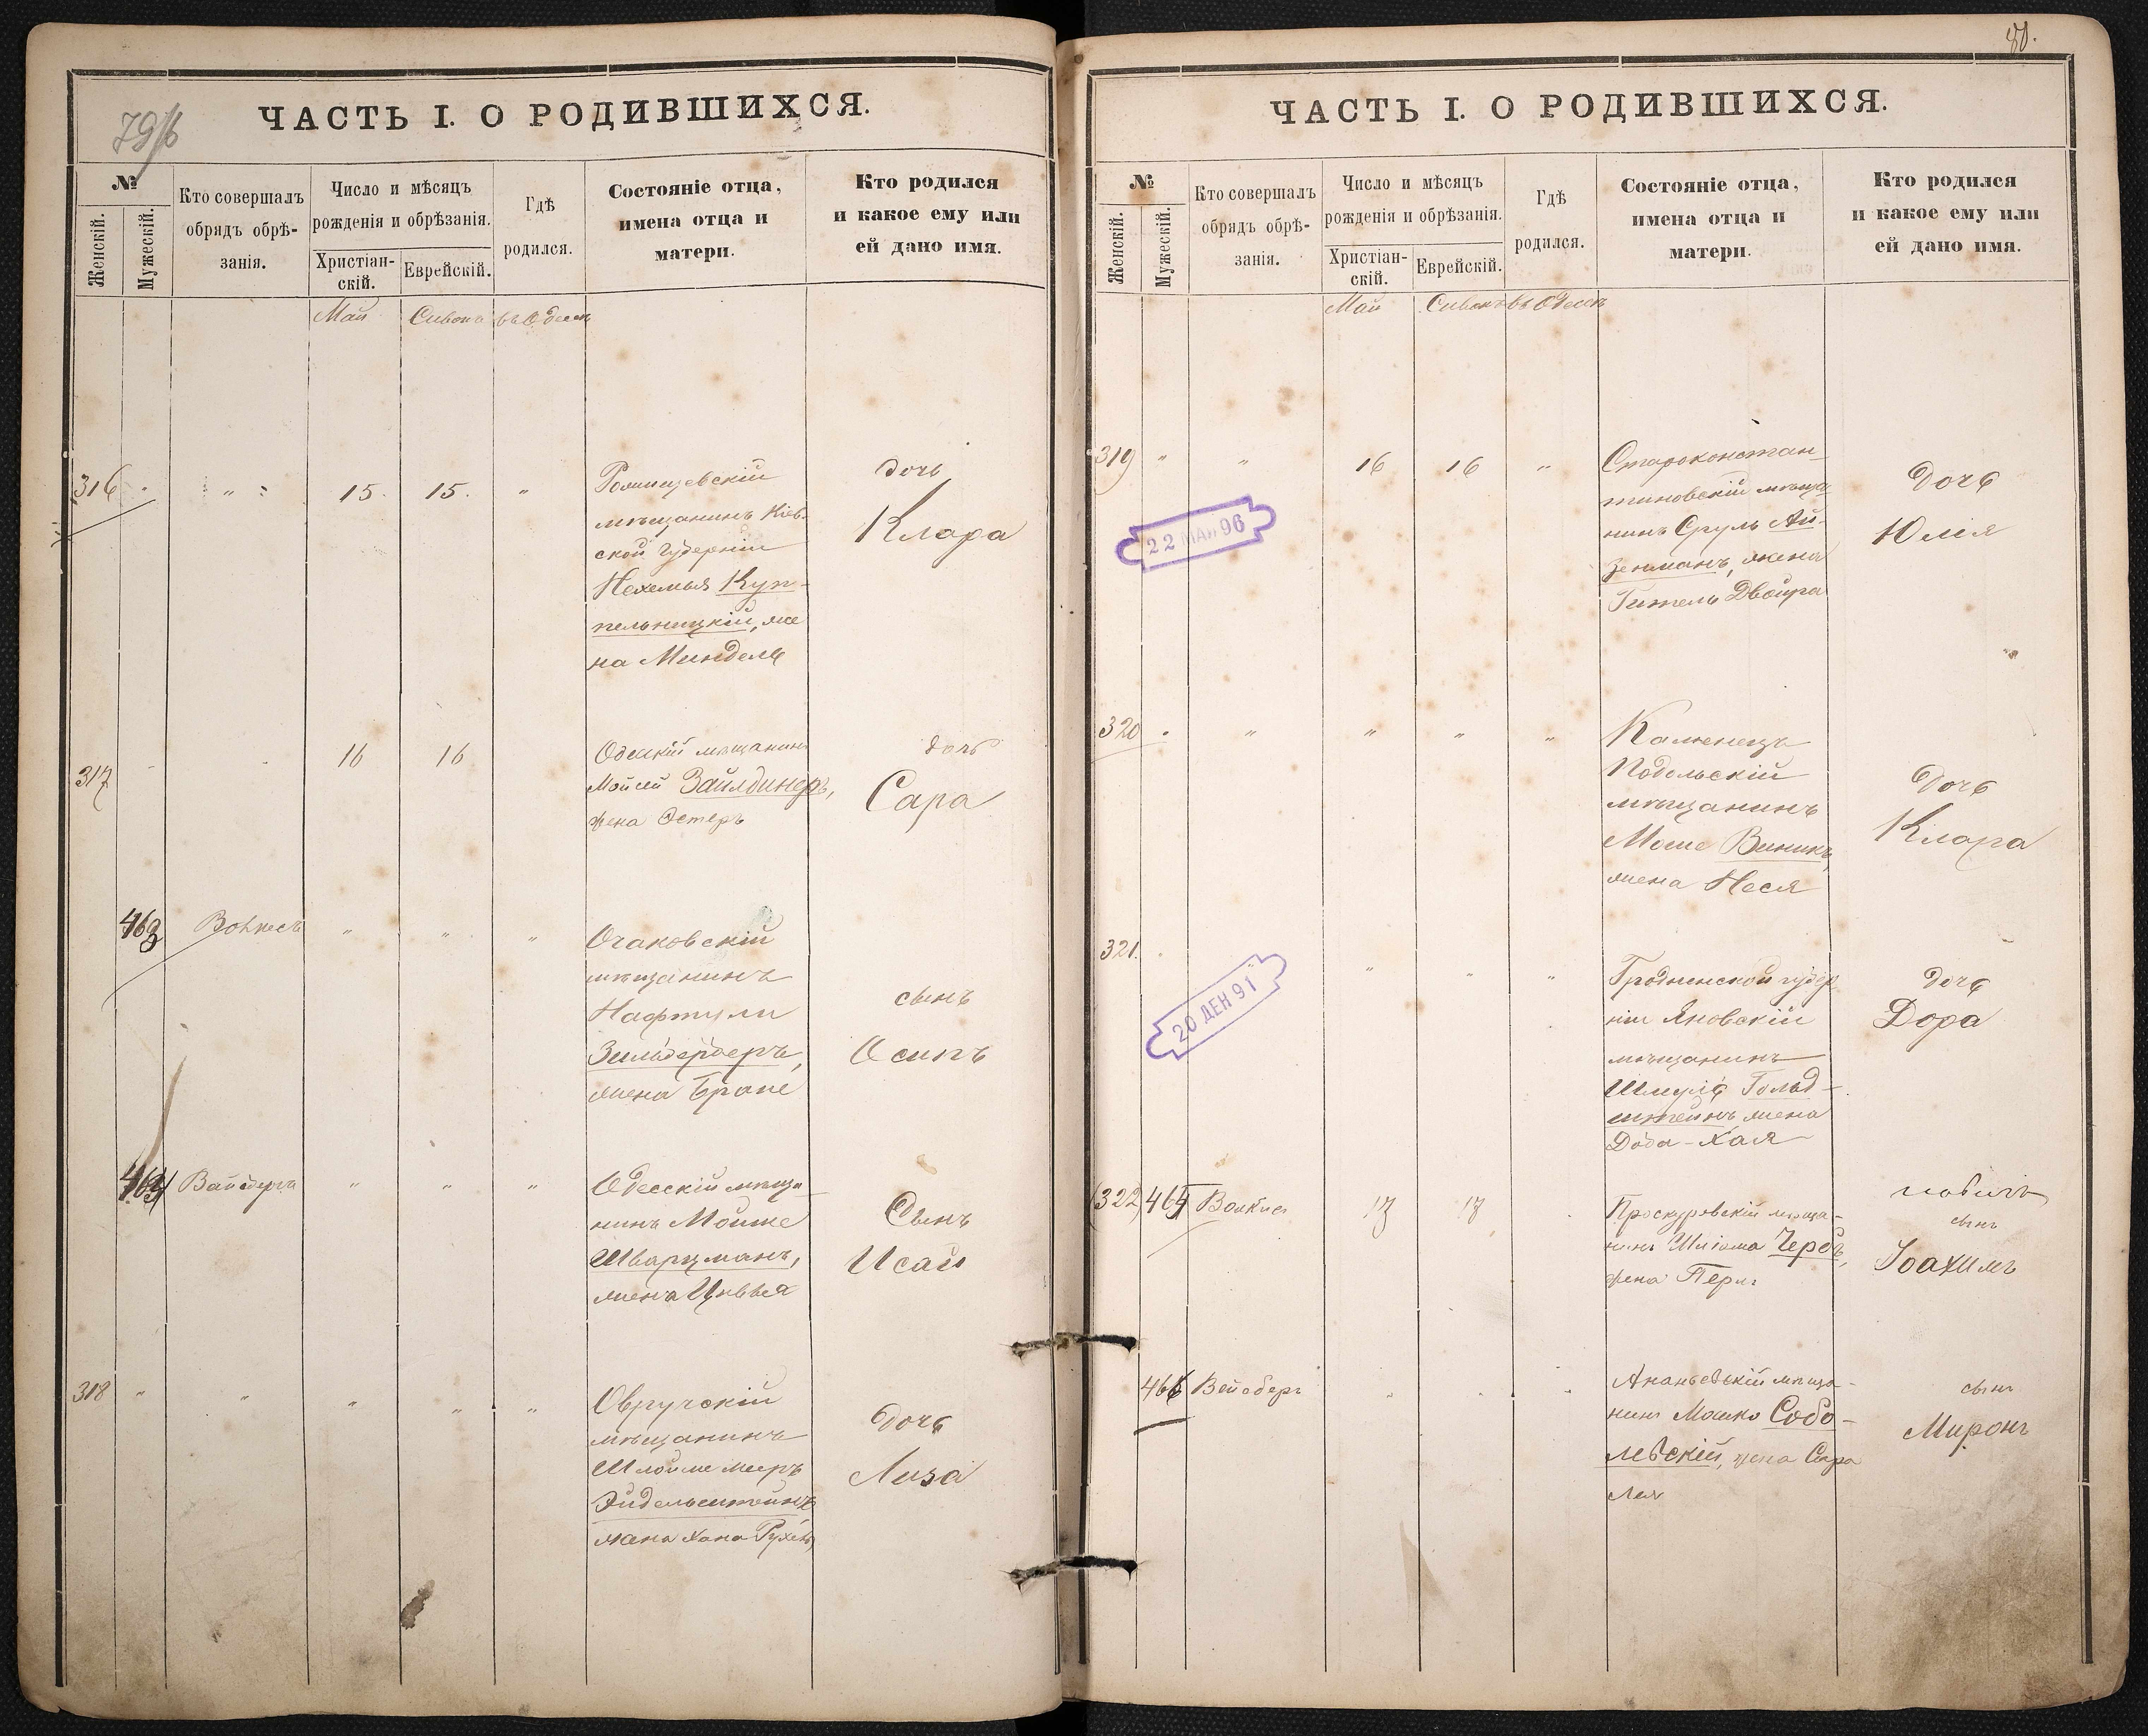 79/б
ЧАСТЬ I. О РОДИВШИХСЯ.
№
Женскій.
Мужескій.
Кто совершалъ
обрядъ обрѣ-
занія.
Число и мѣсяцъ
рожденія и обрѣзанія.
Христіан-
скій.
Еврейскій.
Гдѣ
родился.
Состояніе отца,
имена отца и
матери.
Кто родился
и какое ему или
ей дано имя.
Май Сивана въ Одессѣ
316 " " 15. 15. "
мѣщанинъ Кіев-
ской губерніи
Нехемья Куп-
пельницкій, же
на Миндель
дочь
Клара
317 16 16
Одесскій мѣщанинъ
Мойсей Зайлдинеръ,
жена Эстеръ
дочь
Сара
463 " " "
Очаковскій
мѣщанинъ
Нафтули
Зильберберъ,
жена Бране
сынъ
Осипъ
464 Вайсбергъ " " "
Одесскій мѣща-
нинъ Мойше
Шварцманъ,
жена Цивья
Сынъ
Исай
318 " " " " "
Овручскій
мѣщанинъ
Шлойме Меиръ
Эйдельштейнъ
жена Хана Рухель
дочь
Лиза
80.
ЧАСТЬ I. О РОДИВШИХСЯ.
№
Женскій.
Мужескій.
Кто совершалъ
обрядъ обрѣ-
занія.
Число и мѣсяцъ
рожденія и обрѣзанія.
Христіан-
скій.
Еврейскій.
Гдѣ
родился.
Состояніе отца,
имена отца и
матери.
Кто родился
и какое ему или
ей дано имя.
Май Сиванъ въ Одессѣ
319 " " 16 16 "
Староконстан-
тиновскій мѣща-
нинъ Сруль Ай-
зенманъ, жена
Гитель Двойра
дочь
Юлія
22 МАЯ 96
320 " " " " "
Каменецъ
Подольскій
мѣщанинъ
Моше Виникъ,
жена Неся
дочь
Клара
321. " " "
Гродненской губер-
ніи Яновскій
мѣщанинъ
Шмуль Гольд-
штейнъ, жена
Доба-Хая
дочь
Дора
20 ДЕН 91
(322) 465 17 17
Проскуровскій мѣща-
нинъ Шліома Чербъ,
жена Перль
сынъ
Іоахимъ
466 Вейсбергъ
Ананьевскій мѣща-
нинъ Мошко Собо-
левскій, жена Сара
Лея
сынъ
Миронъ